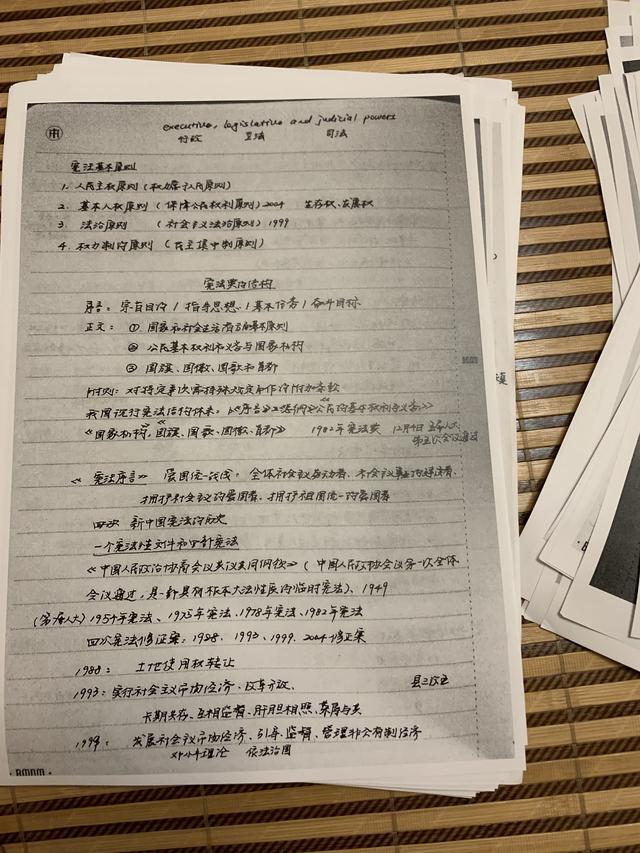 executive, legislative and judicial powers
行政 立法 司法
宪法基本原则
1. 人民主权原则（权力属于人民原则）
2. 基本人权原则（保障公民权利原则）2004 生存权、发展权
3. 法治原则 （社会主义法治原则）1999
4. 权力制约原则 （民主集中制原则）
宪法典的结构
序言：宗旨目的 / 指导思想 / 基本任务 / 奋斗目标
正文：① 国家和社会生活诸方面基本原则
② 公民基本权利和义务与国家机构
③ 国旗、国徽、国歌和首都
附则：对特定事项需特殊规定而作的附加条款
我国现行宪法结构 《序言》《总纲》《公民的基本权利与义务》
《国家机构，国旗、国歌、国徽、首都》 1982年宪法典 12月4日 五届人大
第五次会议通过
《宪法序言》 爱国统一战线：全体社会主义劳动者、社会主义事业的建设者、
拥护社会主义的爱国者、拥护祖国统一的爱国者
四次 新中国宪法的历史
一个宪法性文件和四部宪法
《中国人民政治协商会议共同纲领》（中国人民政协会议第一次全体
会议通过，是一部具有根本大法性质的临时宪法）、1949
(第一届人大) 1954年宪法、1975年宪法、1978年宪法、1982年宪法
四次宪法修正案：1988、1993、1999、2004 修正案
1988： 土地使用权转让
1993：实行社会主义市场经济、改革开放、 县三改五
长期共存、互相监督、肝胆相照、荣辱与共
1999： 发展社会主义市场经济、引导、监督、管理非公有制经济
邓小平理论 依法治国